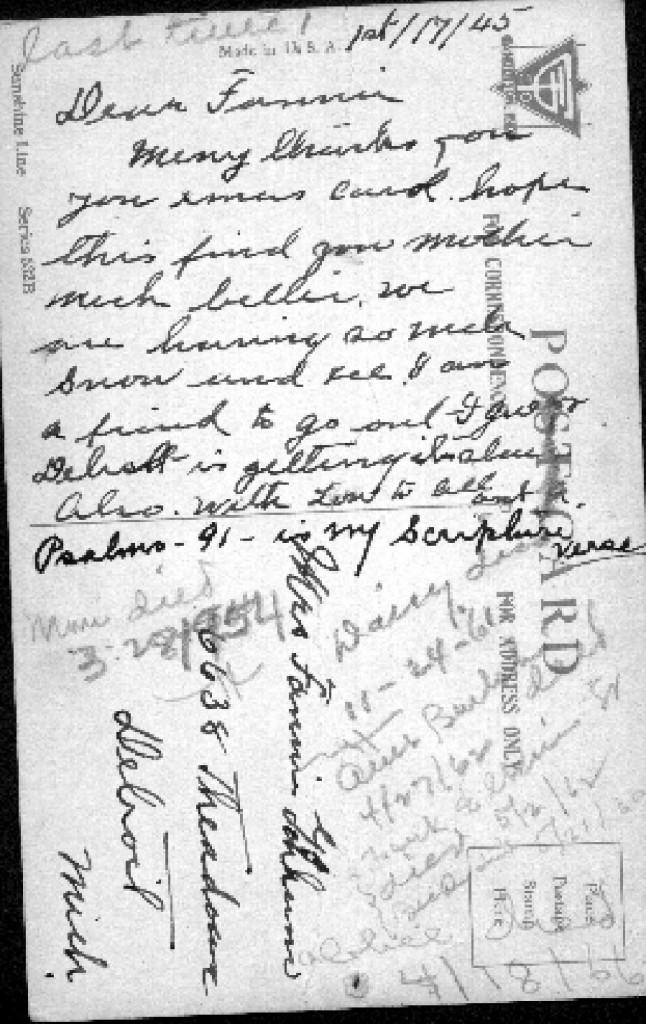 last time!
Made in U.S.A.
1st/17/45
Sunshine Line Series 532B
Dear Fannie
Meny thanks for
you xmas card. hope
this find you mother
much better. we
are having so much
snow and ice. I am
a friad to go out I guess
Detroit is getting its share
Also. With Love to all
Psalms - 91 - is my Scripture verse
POST CARD
FOR CORRESPONDENCE
FOR ADDRESS ONLY
Mrs Fannie
6638 Theadore
Detroit
Mich.
Mom died
3-28-1954
Daisy
11-24-61
4/27/62
died 5/2/62
died
4/18/66
Place
Postage
Stamp
Here